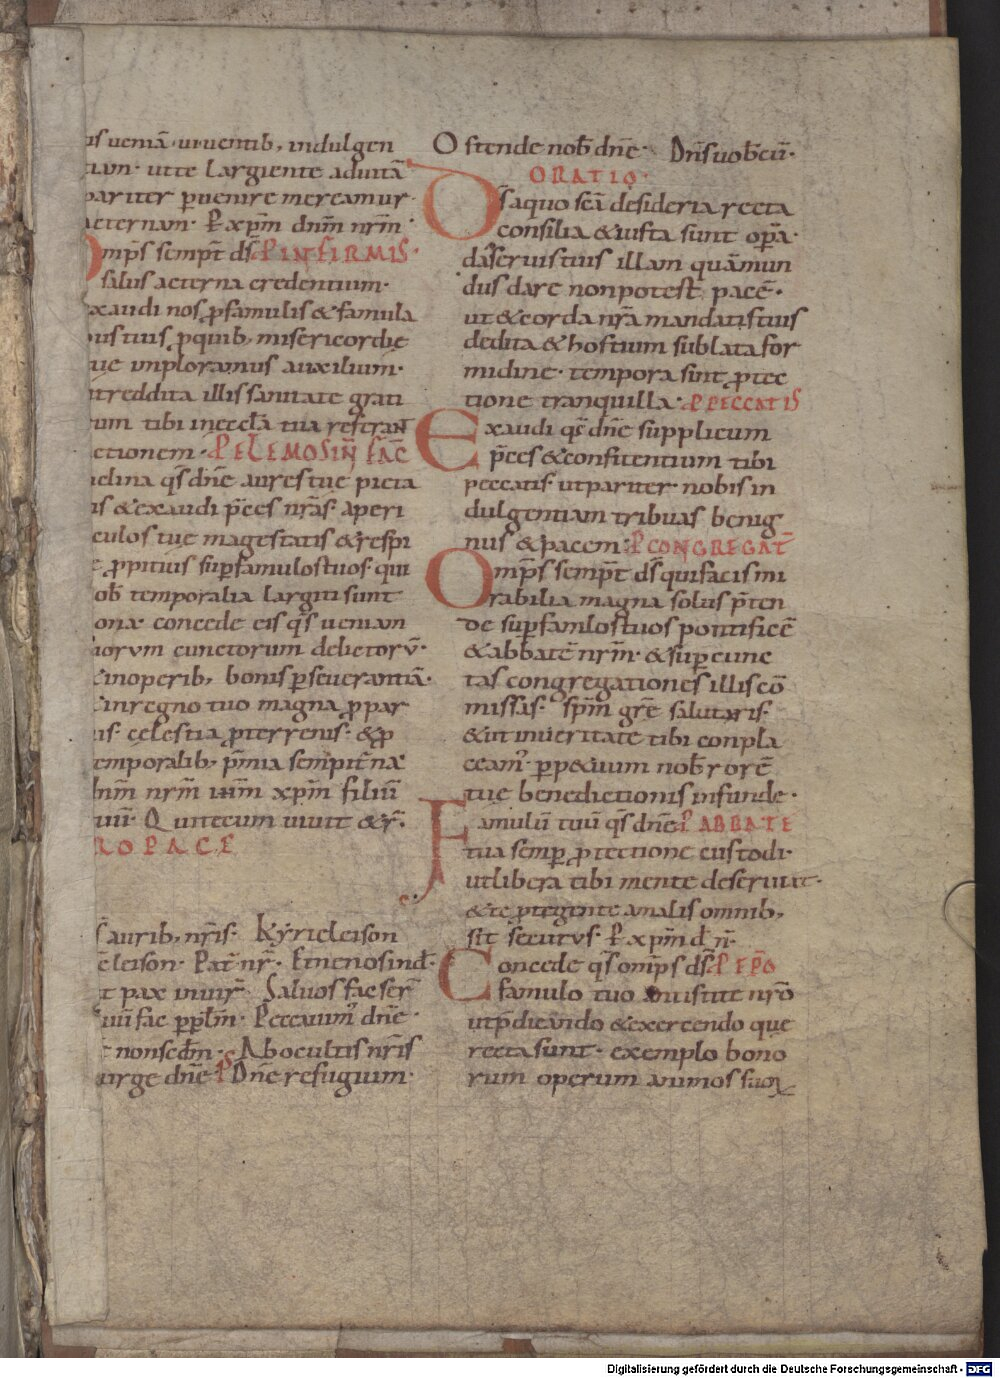 us ueniā· uiuentib; indulgen
tiam· ut te largiente ad uitā
pariter puenire mereamur·
aeternam· P xp̄m dn̄m nr̄m·
Omp̄s semp̄t ds̄ P INFIRMIS·
salus aeterna credentium·
exaudi nos ꝓ famulis & famula
bus tuis ꝓ quib; misericordię
tuę imploramus auxilium·
ut reddita illis sanitate grati
arum tibi in eccla tua referant
actionem· P ELEMOSIN̄ FAC̄
nclina qs̄ dn̄e aures tuę pieta
is & exaudi p̄ces nr̄as· aperi
culos tuę magestatis & respi
ce ꝓpitius sup famulos tuos· qui
nob̄ temporalia largiti sunt
bona· concede eis qs̄ ueniam
suorum cunctorum delictorū·
& in operib; bonis pseuerantiā·
& in regno tuo magna ꝓ par
uis· cęlestia ꝓ terrenis· & ꝓ
temporalib; p̄mia sempit̄na·
dn̄m nr̄m ihm̄ xp̄m filiū
tuū· Qui tecum uiuit & r̄·
RO PACE
s auribus; nr̄is· Kyrieleison
eleison· Pat̄ nr̄· Et ne nos ind·
t pax in uir̄· Saluos fac ser̄
uū fac pplm̄· Peccauim̄ dn̄e·
t non scdm̄· Ab ocultis nr̄is
urge dn̄e Dn̄e refugium·
Ostende nob̄ dn̄e· Dn̄s uob̄cū·
ORATIO·
Ds̄ a quo sc̄a desideria recta
consilia & iusta sunt opa·
da seruis tuis illam quā mun
dus dare non potest pacē·
ut & corda nr̄a mandatis tuis
dedita & hostium sublata for
midine· tempora sint ꝓtec
tione tranquilla· P PECCATIS
Exaudi qs̄ dn̄e supplicum
p̄ces & confitentium tibi
peccatis· ut pariter nobis in
dulgentiam tribuas benig
nus & pacem· P CONGREGAT̄
Omp̄s semp̄t ds̄ qui facis mi
rabilia magna solus p̄ten
de sup famlos tuos pontificē
& abbatē nr̄m· & sup cunc
tas congregationes illis cō
missas· sp̄m grę salutaris·
& ut in ueritate tibi conpla
ceant· pp&uum nob̄ rorē
tuę benedictionis infunde·
Famulū tuū qs̄ dn̄e P ABBATE
tua semp ꝓtectione custodi·
ut libera tibi mente deseruiat·
& te ꝓtegente a malis omnib;
sit securus· P xp̄m d n̄·
Concede qs̄ omp̄s ds̄ P EP̄O
famulo tuo antistite nr̄o
ut p̄dicando & exercendo que
recta sunt· exemplo bono
rum operum animos suoꝝ
Digitalisierung gefördert durch die Deutsche Forschungsgemeinschaft - DFG